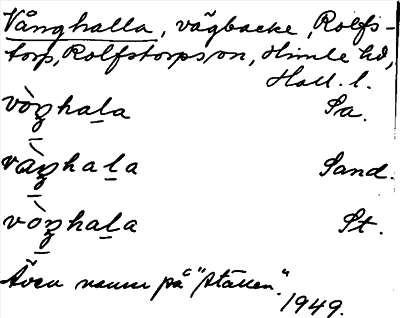 Vånghalla, vägbacke, Rolfs-
torp, Rolfstorps sn, Himle hd,
Hall. l.
vòŋhala Sa.
vàŋhala Sand.
vòŋhala St.
Även namn på "ställen".
1949.